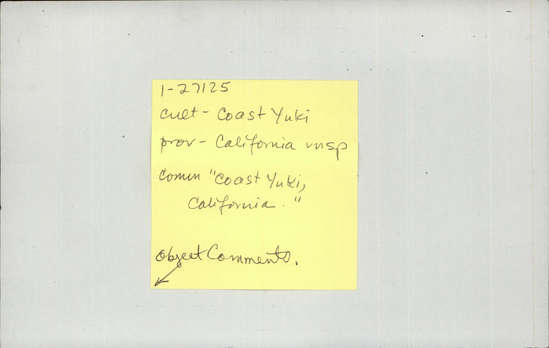 1-27125
cult - Coast Yuki
prov - California unsp
Comm "Coast Yuki,
California."
Object Comments.